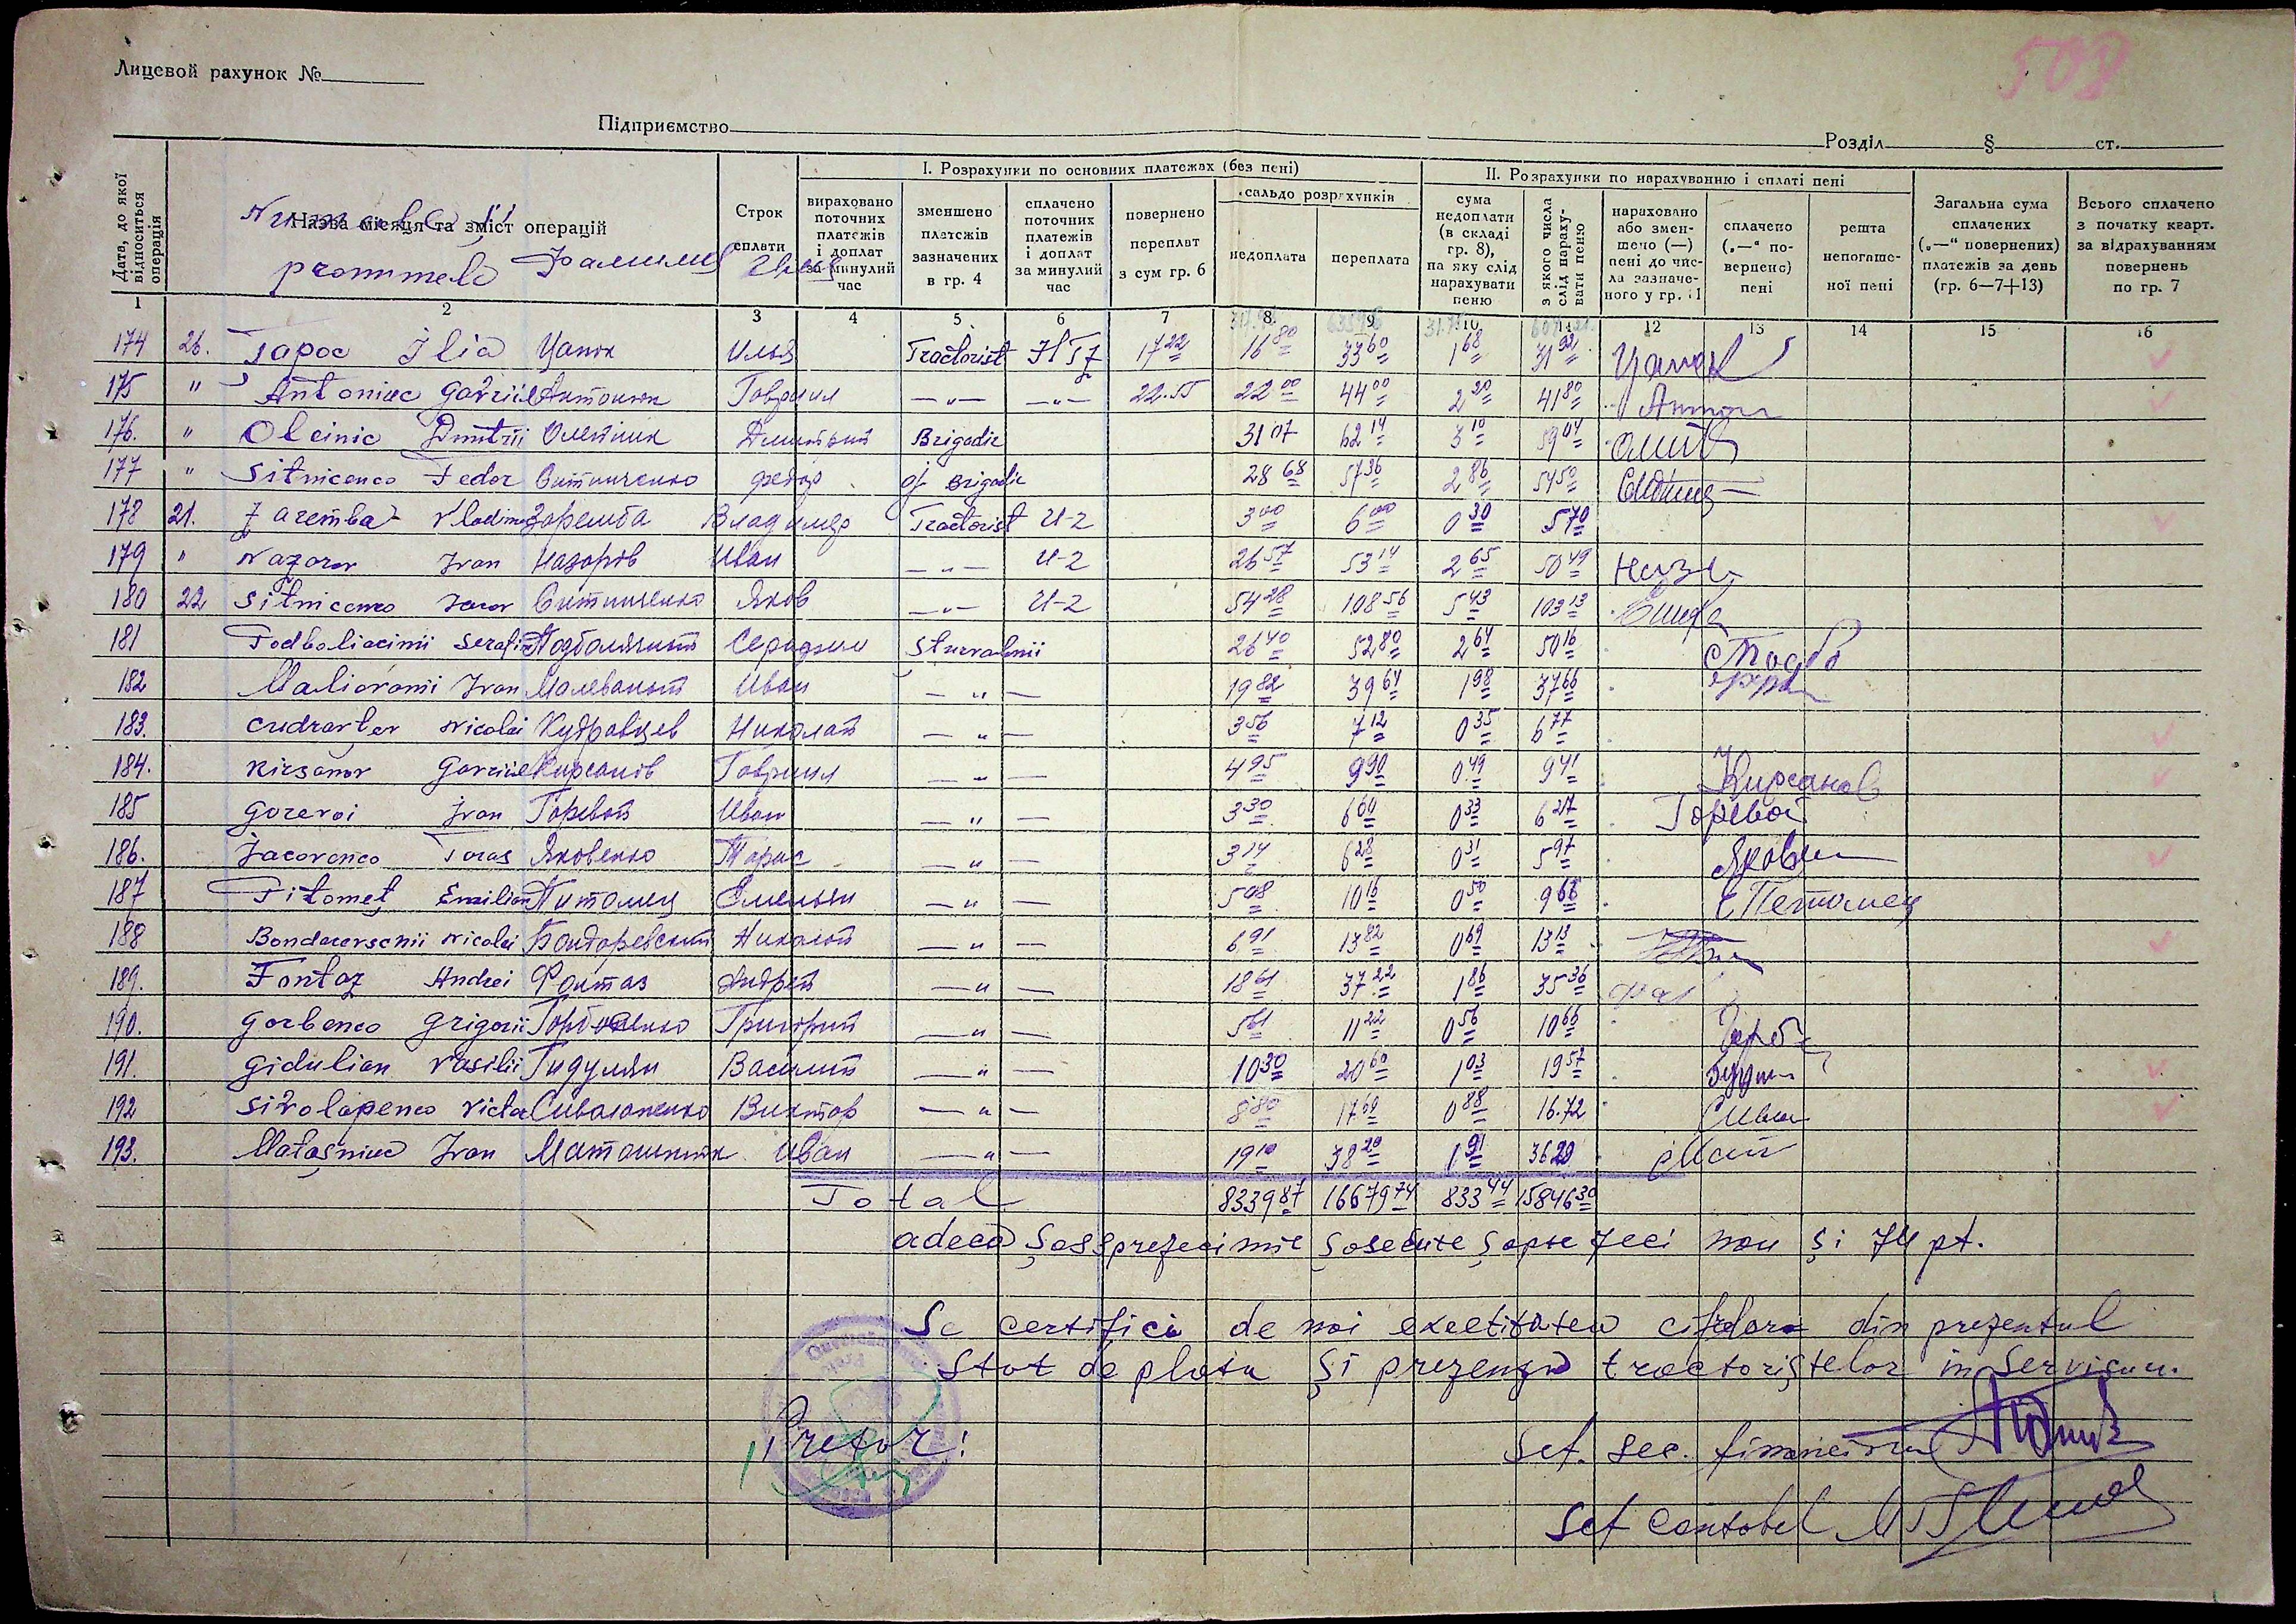 508
Лицевой рахунок №
Підприємство
Розділ § ст.
Дата, до якої відноситься операція
Назва місяця та зміст операцій
Numele și
pronumele Фамилия
Строк сплати
Имя
I. Розрахунки по основних платежах (без пені)
вираховано поточних платежів і доплат за минулий час
зменшено платежів зазначених в гр. 4
сплачено поточних платежів і доплат за минулий час
повернено переплат з сум гр. 6
сальдо розрахунків
недоплата
переплата
II. Розрахунки по нарахуванню і сплаті пені
сума недоплати (в складі гр. 8), на яку слід нарахувати пеню
з якого числа слід нарахувати пеню
нараховано або зменшено (—) пені до числа зазначеного у гр. 11
сплачено („—“ повернено) пені
решта непогашеної пені
Загальна сума сплачених („—“ повернених) платежів за день (гр. 6—7+13)
Всього сплачено з початку кварт. за відрахуванням повернень по гр. 7
1 2 3 4 5 6 7 8 9 10 11 12 13 14 15 16
174 26. Țapoc Ilia Цапок Илья Tractorist 17 22 16 80 33 60 1 68 31 92 Цапок
175 " Antoniuc Gavriil Антонюк Гавриил — " — — " — 22.55 22 00 44 00 2 20 41 80 Антон
176. " Oleinic Dmitrii Олейник Дмитрий Brigadir 31 07 62 14 3 10 59 04
177 " Sitnicenco Fedor Ситниченко Федор aj Brigadir 28 68 57 36 2 86 54 50
178 21. Zaremba Vladimir Заремба Владимир Tractorist U-2 3 00 6 00 0 30 5 70
179 " Nazarov Ivan Назаров Иван — " — U-2 26 57 53 14 2 65 50 49
180 22 Sitnicenco Iacov Ситниченко Яков — " — U-2 54 28 108 56 5 43 103 13
181 Podboliacinii Serafim Подболячный Серафим Sturvalnii 26 40 52 80 2 64 50 16
182 Maliovanii Ivan Малеваный Иван — " — 19 82 39 64 1 98 37 66
183. Cudravțev Nicolai Кудравцев Николай — " — 3 56 7 12 0 35 6 77
184. Kirsanov Gavriil Кирсанов Гавриил — " — 4 95 9 90 0 49 9 41 Кирсанов
185 Gorevoi Ivan Горевой Иван — " — 3 30 6 60 0 33 6 27 Горевой
186. Iacovenco Taras Яковенко Тарас — " — 3 14 6 28 0 31 5 97
187 Pitomeț Emilian Питомец Емельян — " — 5 08 10 16 0 50 9 66 Е Петомец
188 Bondarevschii Nicolai Бондаревский Николай — " — 6 91 13 82 0 69 13 13
189. Fontaz Andrei Фонтаз Андрей — " — 18 61 37 22 1 86 35 36
190. Gorbenco Grigorii Горбоенко Григорий — " — 5 61 11 22 0 56 10 66
191. Gidulian Vasilii Гидулян Василий — " — 10 30 20 60 1 03 19 57
192 Sivolapenco Victor Сиволапенко Виктор — " — 8 80 17 60 0 88 16.72
193. Matașniuc Ivan Маташнюк Иван — " — 19 10 38 20 1 91 36 29
Total 8339 87 16679 74 833 44 15846 30
adecă șassprezeci mie șasecute șapte zeci nou și 74 pt.
Se certifică de noi exectitatea cifrelor din prezentul
stat de plata și prezența tractoriștelor in serviciu.
Pretor:
Șef. sec. financiara
Șef Contabil